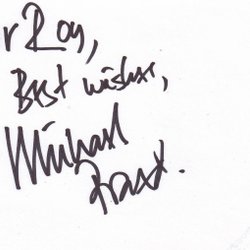 r Roy,
Best wishes,
Michael